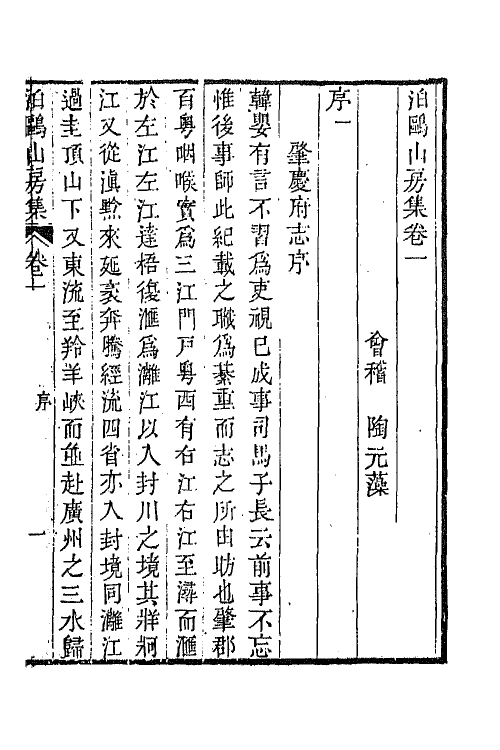 泊鷗山房集卷一
會稽 陶元藻
序一
肇慶府志序
韓嬰有言不習爲吏視已成事司馬子長云前事不忘
惟後事師此紀載之職爲綦重而志之所由昉也肇郡
百粵咽喉實爲三江門戶粵西有右江右江至潯而滙
於左江左江達梧復滙爲灕江以入封川之境其牂牁
江又從滇黔來延袤奔騰經流四省亦入封境同灕江
過圭頂山下又東流至羚羊峽而並赴廣州之三水歸
泊鷗山房集 卷一 序 一